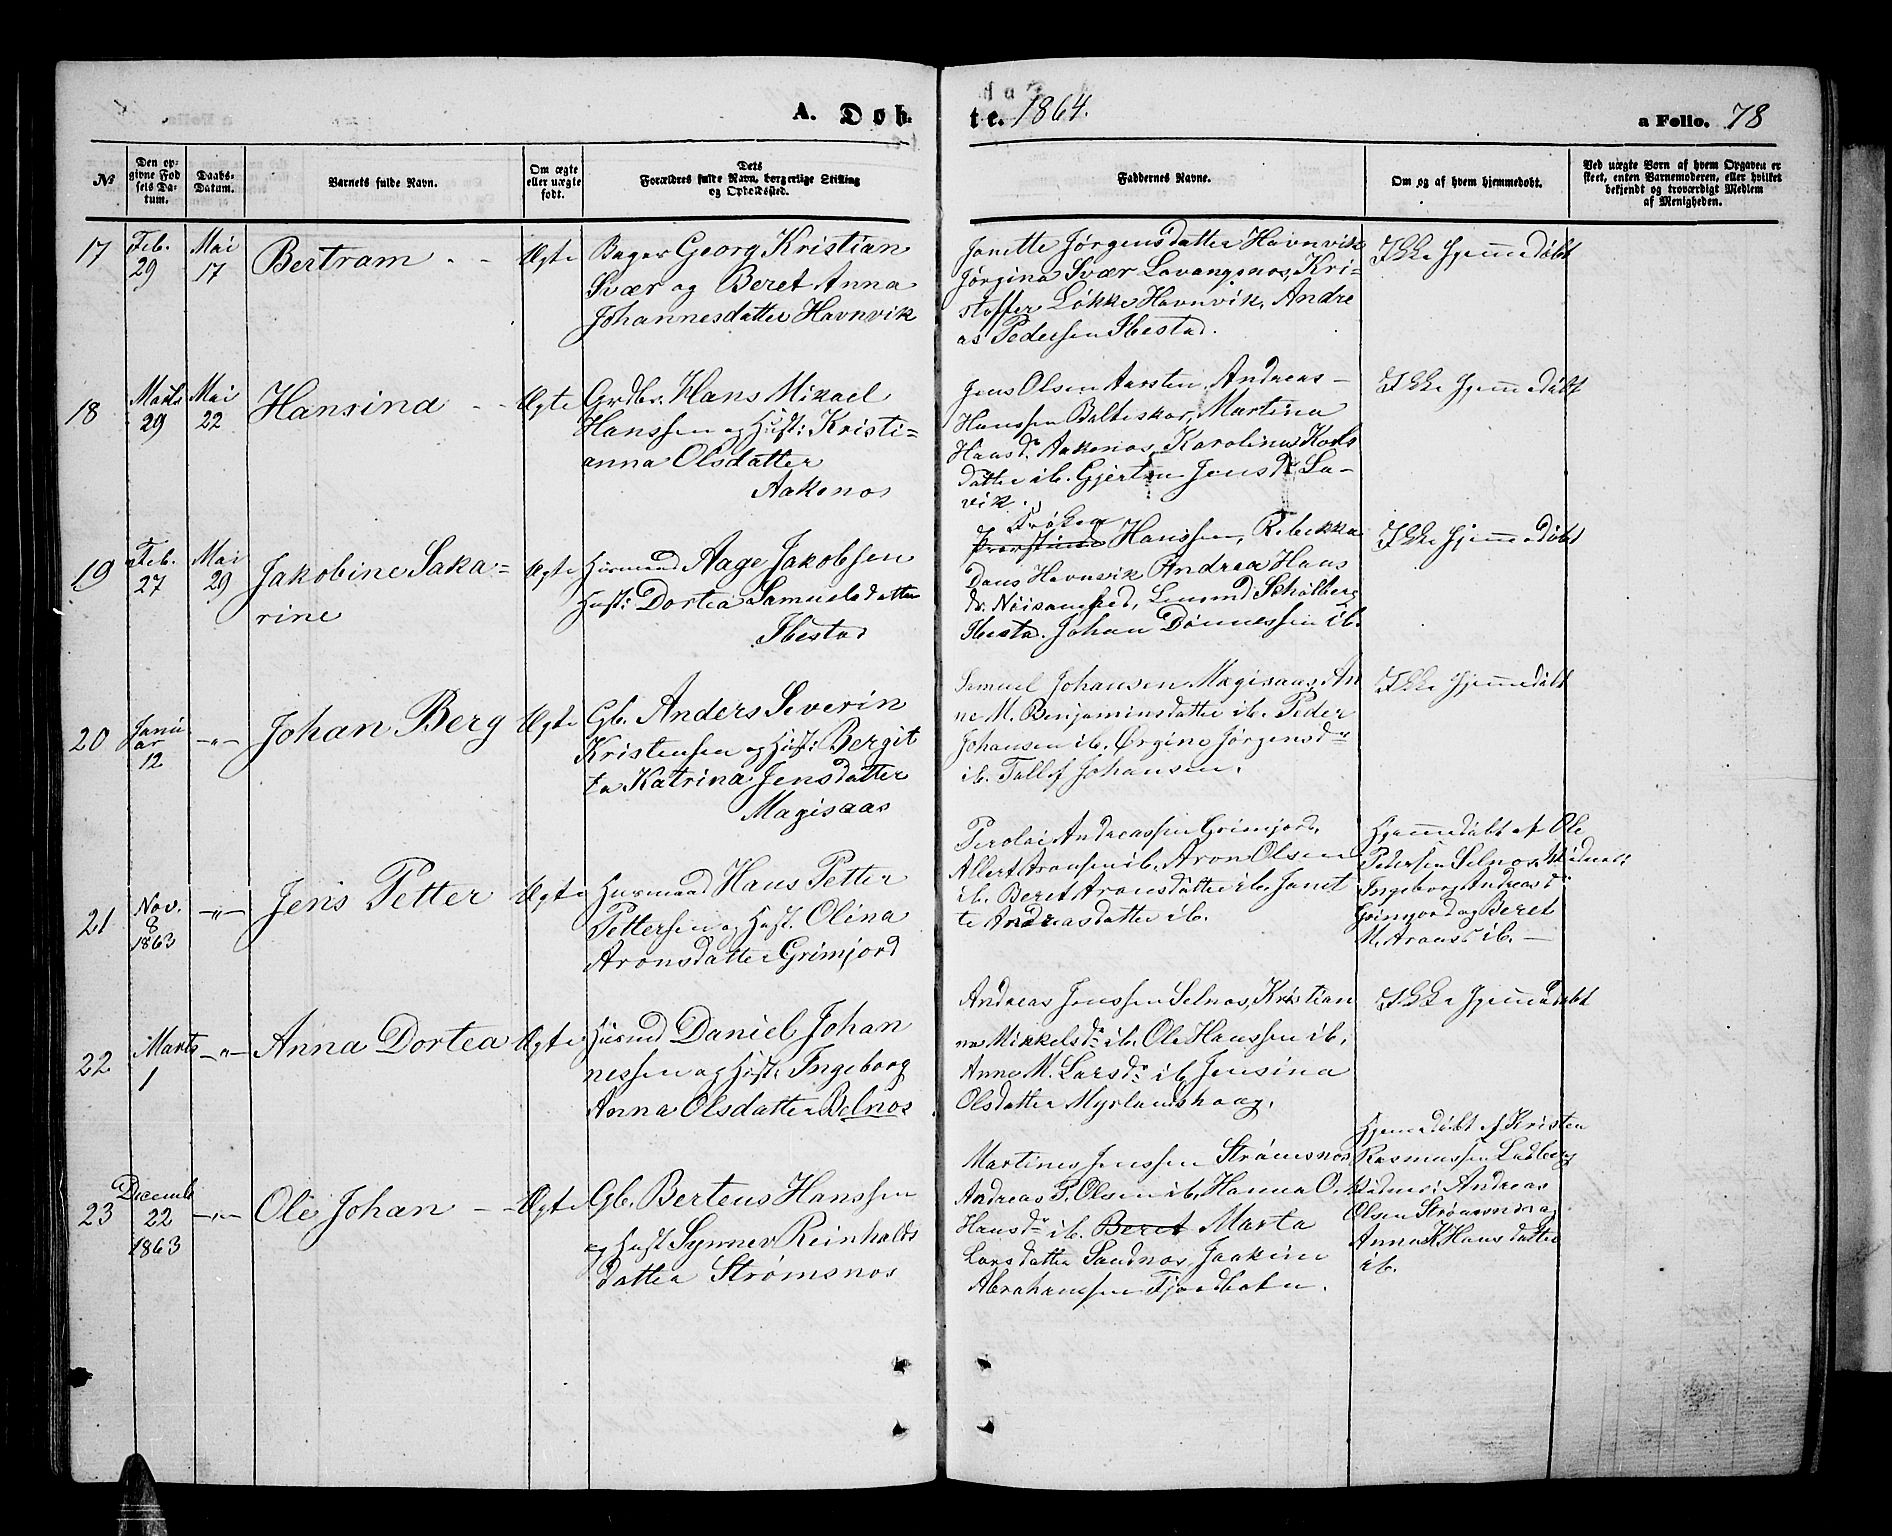 A. Døb
te. 1864.
a Folio. 78
№
Den op-
givne Fød
sels Da-
tum.
Daabs-
Datum.
Barnets fulde Navn.
Om ægte
eller uægte
født.
Dets
Forældres fulde Navn, borgerlige Stilling
og Opholdssted.
Faddernes Navne.
Om og af hvem hjemmedøbt.
Ved uægte Børn af hvem Opgaven er
skeet, enten Barnemoderen, eller hvilket
bekjendt og troværdigt Medlem
af Menigheden.
17
Feb.
29
Mai
17
Bertram
Ægte
Bager Georg Kristian
Svær og Beret Anna
Johannesdatter Havnvik
Janette Jørgensdatter Havnvik
Jørgina Svær Lavangsnos, Kri-
stoffer Løkke Havnvik, Andre
as Pedersen Ibestad.
Ikke hjemmedøbt
18
Marts
29
Mai
22
Hansina
Ægte
Grdbr. Hans Mikael
Hanssen og Hust: Kristi-
anna Olsdatter
Aakenos
Jens Olsen Aarsten, Andreas
Hanssen Balteskar, Martina
Haasdr. Aakenos, Karolina Karls
datter ib. Gjertin Jensdr La-
vik.
Ikke hjemmedøbt
19
Feb.
27
Mai
29
Jakobine Saka-
rine
Ægte
Husmand Aage Jakobsen
Hust: Dortea Samuelsdatter
Ibestad
Frøken
Hanssen, Rebekka
Daus Havnvik Andrea Hans
dr. Noisomhed, Schølberg
Ibesta. Johan Dønnessen ib.
Ikke hjemmedøbt
20
Janu
ar
12
—"—
Johan Berg
Ægte
Gb. Anders Severin
Kristensen og Hust: Bergit
ta Katrina Jensdatter
Magisaas
Samuel Johansen Magisaas, An
ne M. Benjaminsdatter ib. Peder
Johansen ib. Ørgine Jørgensdr
ib. Tollef Johansen.
Ikke hjemmedøbt
21
Nov.
8
1863
—"—
Jens Petter
Ægte
Husmand Hans Petter
Pettersen og Hust. Olina
Aronsdatter Grimjord
Perolai Andreassen Grimjord,
Albert Aronsen ib. Aron Olsen
ib. Beret Aronsdatter ib. Janet
te Andreasdatter ib.
Hjemmedøbt af Ole
Pedersen Selnos, Vidner:
Ingeborg Andreasdr
Grimjord og Beret
M. Aronsd ib. —
22
Marts
1
—"—
Anna Dortea
Ægte
Husmd Daniel Johan
nessen og Hust. Ingeborg
Anna Olsdatter Selnos
Andreas Jenssen Selnos, Kristian
na Mikkelsdr ib. Ole Hanssen ib.
Anne M. Larsdr ib. Jensina
Olsdatter Myrlandshaag.
Ikke hjemmedøbt
23
Decemb
22
1863
—"—
Ole Johan
Ægte
Gb. Berteus Hanssen
og Hust Synnev Reinholds
datter Strømsnos
Martines Jenssen Strømsnos
Andreas P. Olsen ib. Hanna O.
Hansdr ib. Beret Marta
Larsdatter Sandnos, Joakim
Abrahamsen Fjordbotn.
Hjemmedøbt af Kristen
Rasmussen Ladberg
Vidner: Andreas
Olsen Strømsnos og
Anna K Hansdatter
ib.